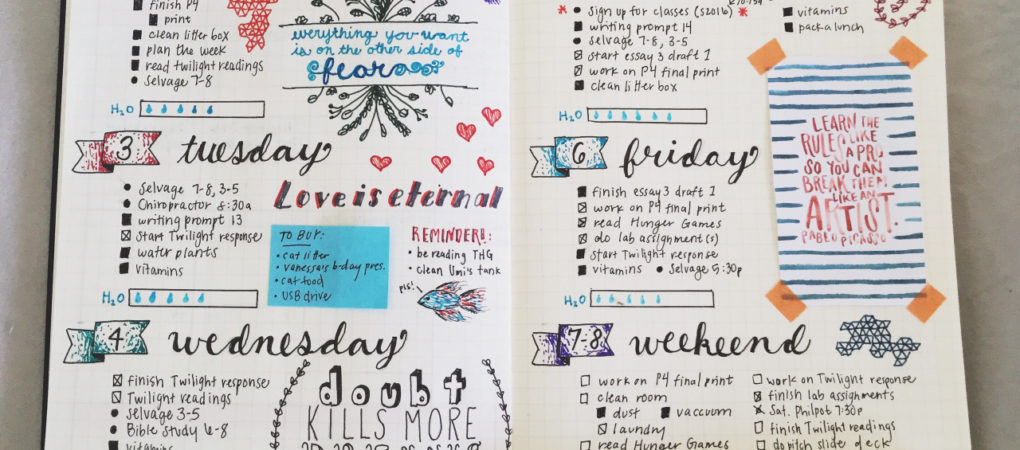 finish P4
print
clean litter box
plan the week
read twilight readings
Selvage 7-8
H₂O
everything you want
is on the other side of
fear
3 tuesday
Selvage 7-8, 3-5
Chiropractor 8:30a
writing prompt 13
Start Twilight response
water plants
vitamins
H₂O
Love is eternal
TO BUY:
cat litter
Vanessa's b-day pres.
cat food
USB drive
REMINDER!:
be reading THG
clean Umi's tank
pls!
4 wednesday
finish Twilight response
Twilight readings
Selvage 3-5
Bible Study 6-8
vitamins
doubt
KILLS MORE
sign up for classes (S2016)
writing prompt 14
Selvage 7-8, 3-5
start essay 3 draft 1
work on P4 final print
clean litter box
vitamins
pack a lunch
H₂O
6 friday
finish essay 3 draft 1
work on P4 final print
read Hunger Games
do lab assignment(s)
start Twilight response
vitamins Selvage 5:30p
H₂O
LEARN THE
RULES LIKE
A PRO
SO YOU CAN
BREAK THEM
LIKE AN
ARTIST.
PABLO PICASSO
7-8 weekeend
work on P4 final print
clean room
dust vaccuum
laundry
read Hunger Games
work on Twilight response
finish lab assignments
Sat. Philpot 7:30p
finish Twilight readings
do pitch slide deck